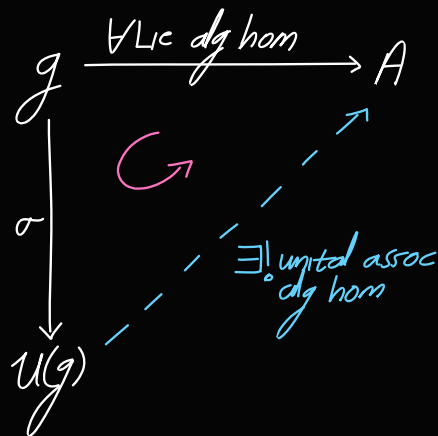 ∀ Lie alg hom
g A
σ
∃! unital assoc
alg hom
U(g)